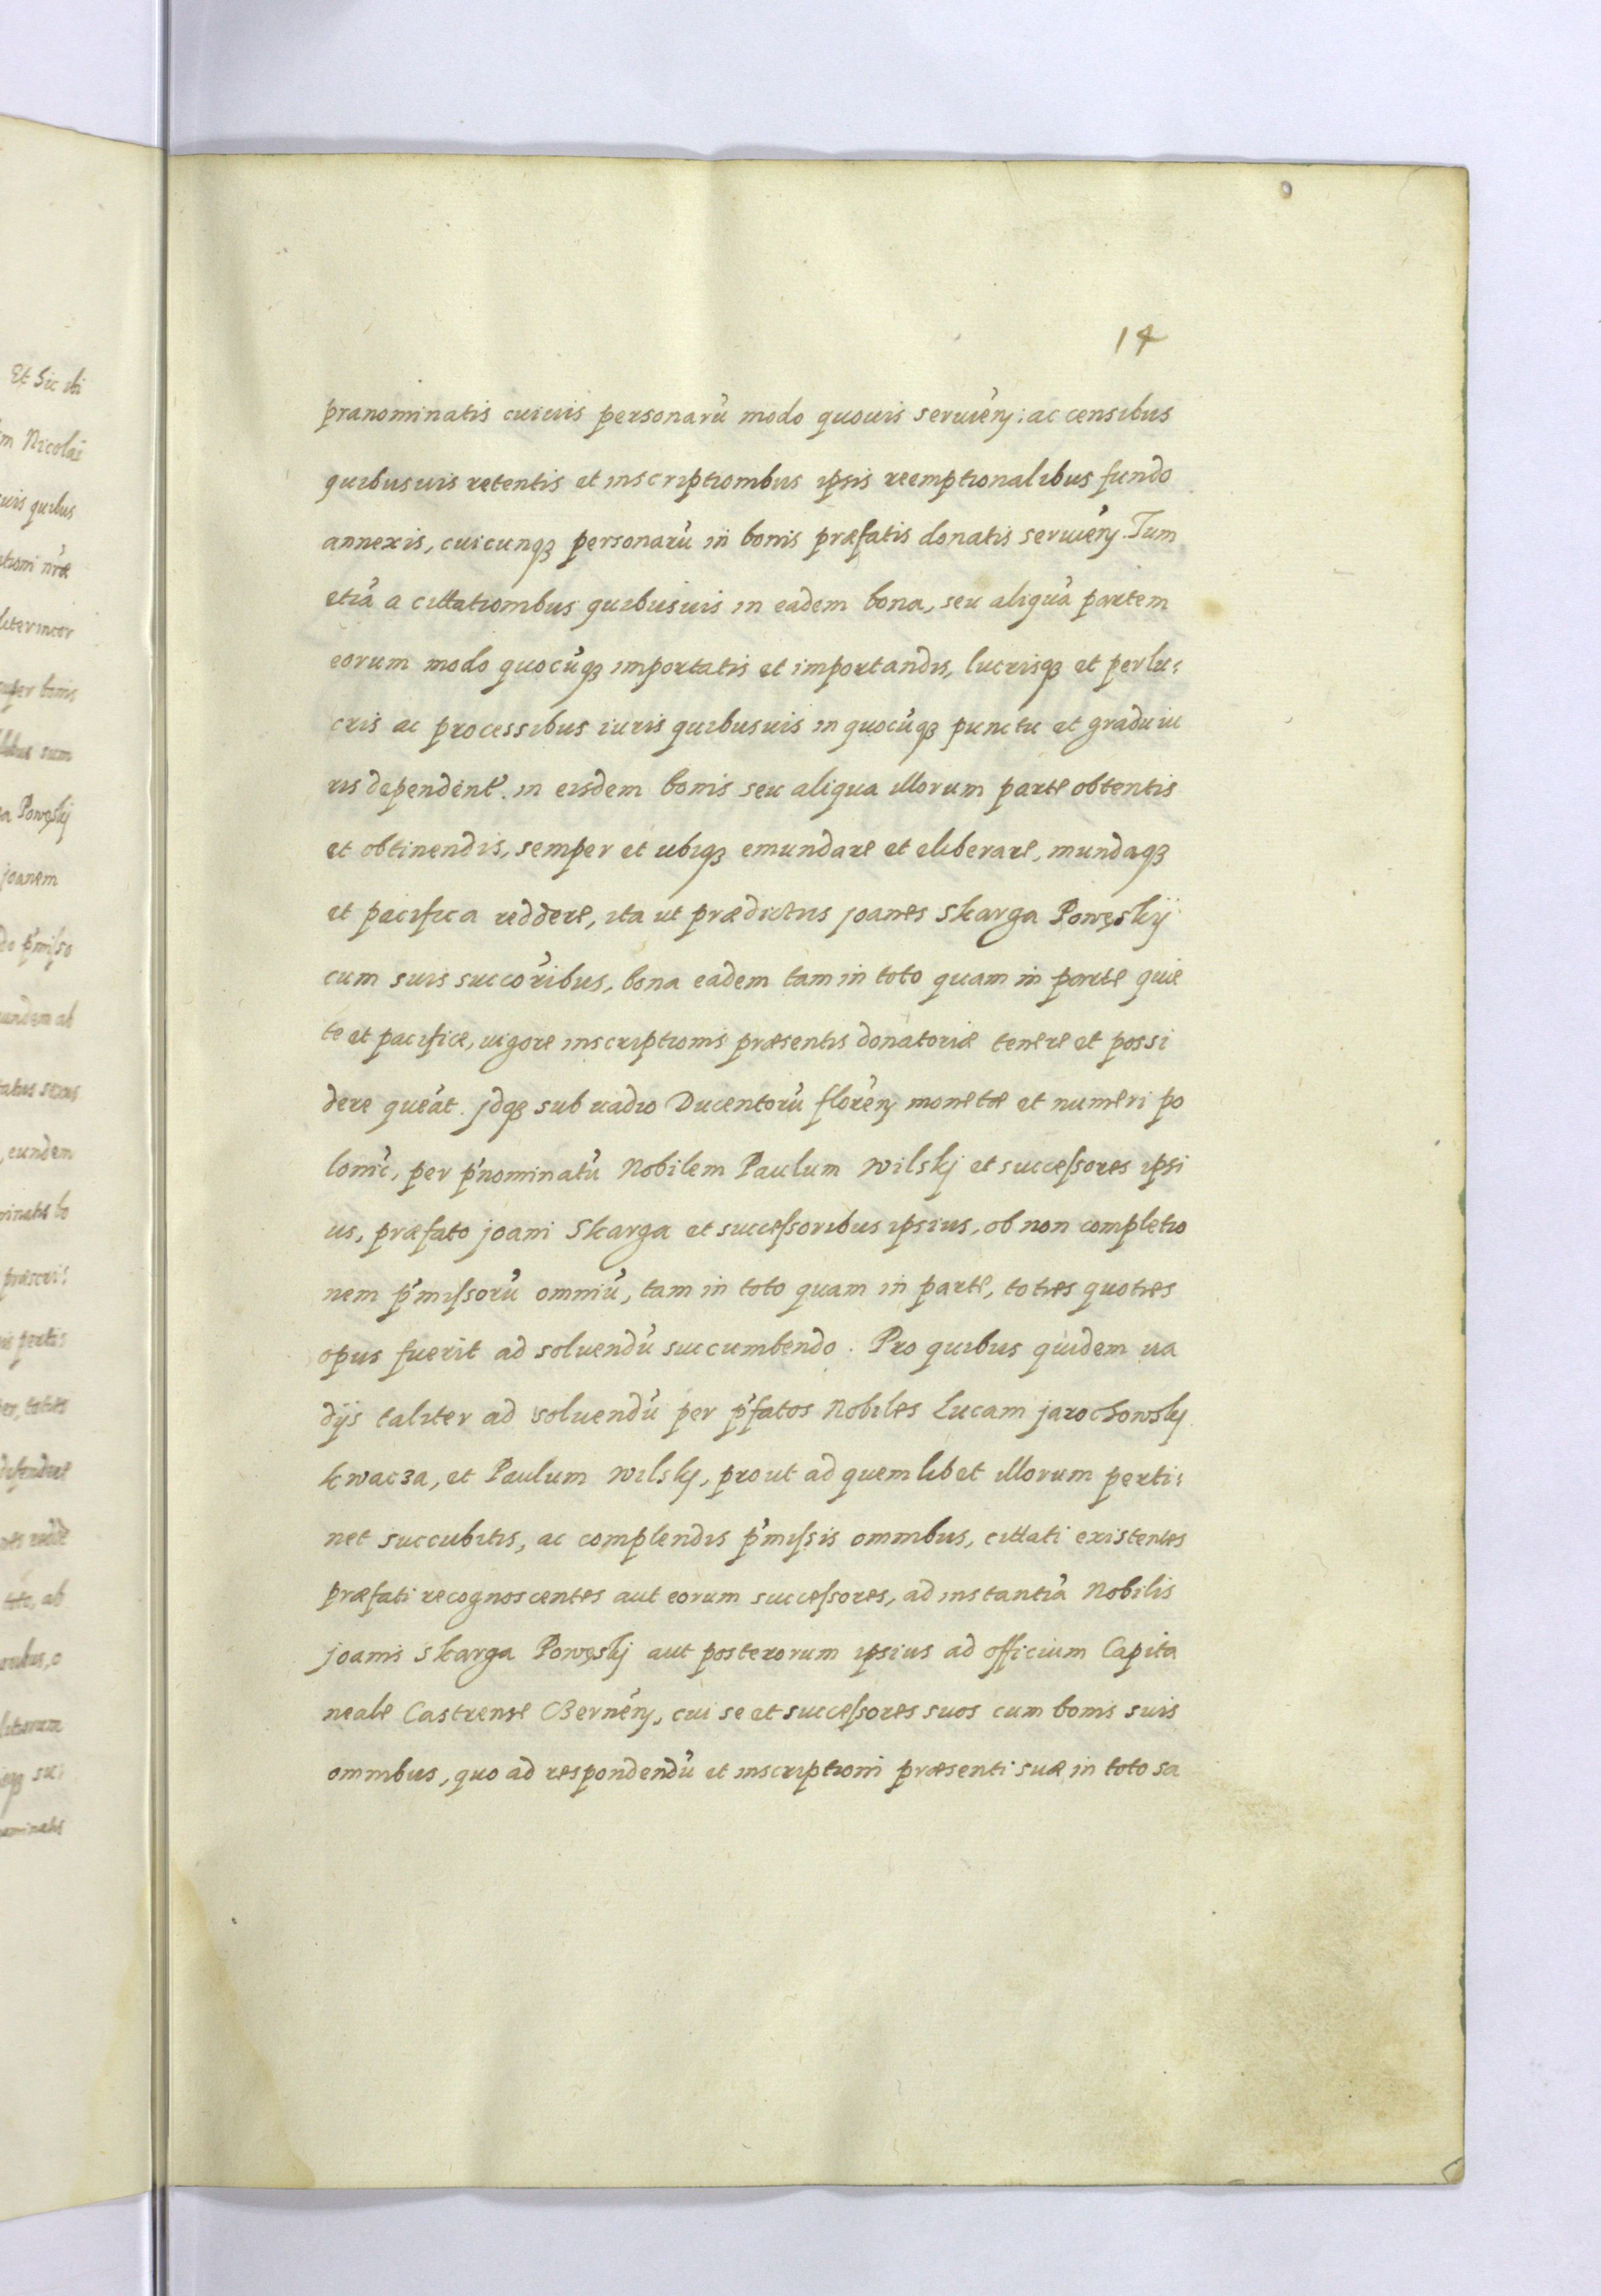 14
prænominatis cuiuis personarú modo quouis seruień; ac censibus
quibusuis retentis et inscriptionibus ipsis reemptionalibus fundo
annexis, cuicunqꝫ personarú in bonis præfatis donatis seruień. Tum
etiá a cittationibus quibusuis in eadem bona, seu aliquá partem
eorum modo quocúqꝫ importatis et importandis, lucrisqꝫ et perlu:
cris ac processibus iuris quibusuis in quocúqꝫ punctu et gradu iu
ris dependent'. in eisdem bonis seu aliqua illorum parte obtentis
et obtinendis, semper et ubiqꝫ emundare et eliberare, mundaqꝫ
et pacifica reddere, ita ut prædictus joanes Skarga Powęskij
cum suis succo'ribus, bona eadem tam in toto quam in parte quie
te et pacifice, uigore inscriptionis præsentis donatoriæ tenere et possi
dere queat. jdqꝫ sub uadio Ducentorú floreń monetæ et numeri po
lonic', per p'nominatú Nobilem Paulum Wilskj et successores ipsi
us, præfato joani Skarga et successoribus ipsius, ob non completio
nem p'missorú omniú, tam in toto quam in parte, toties quoties
opus fuerit ad soluendú succumbendo. Pro quibus quidem ua
dijs taliter ad soluendú per p'fatos Nobiles Lucam jarochowskj
kwacza, et Paulum Wilskj, prout ad quemlibet illorum perti:
net succubitis, ac complendis p'missis omnibus, cittati existentes
præfati recognoscentes aut eorum successores, ad instantiá Nobilis
joanis Skarga Powęskj aut posterorum ipsius ad officium Capita
neale Castrense Berneń, cui se et successores suos cum bonis suis
omnibus, quo ad respondendú et inscriptioni præsenti suæ in toto sa